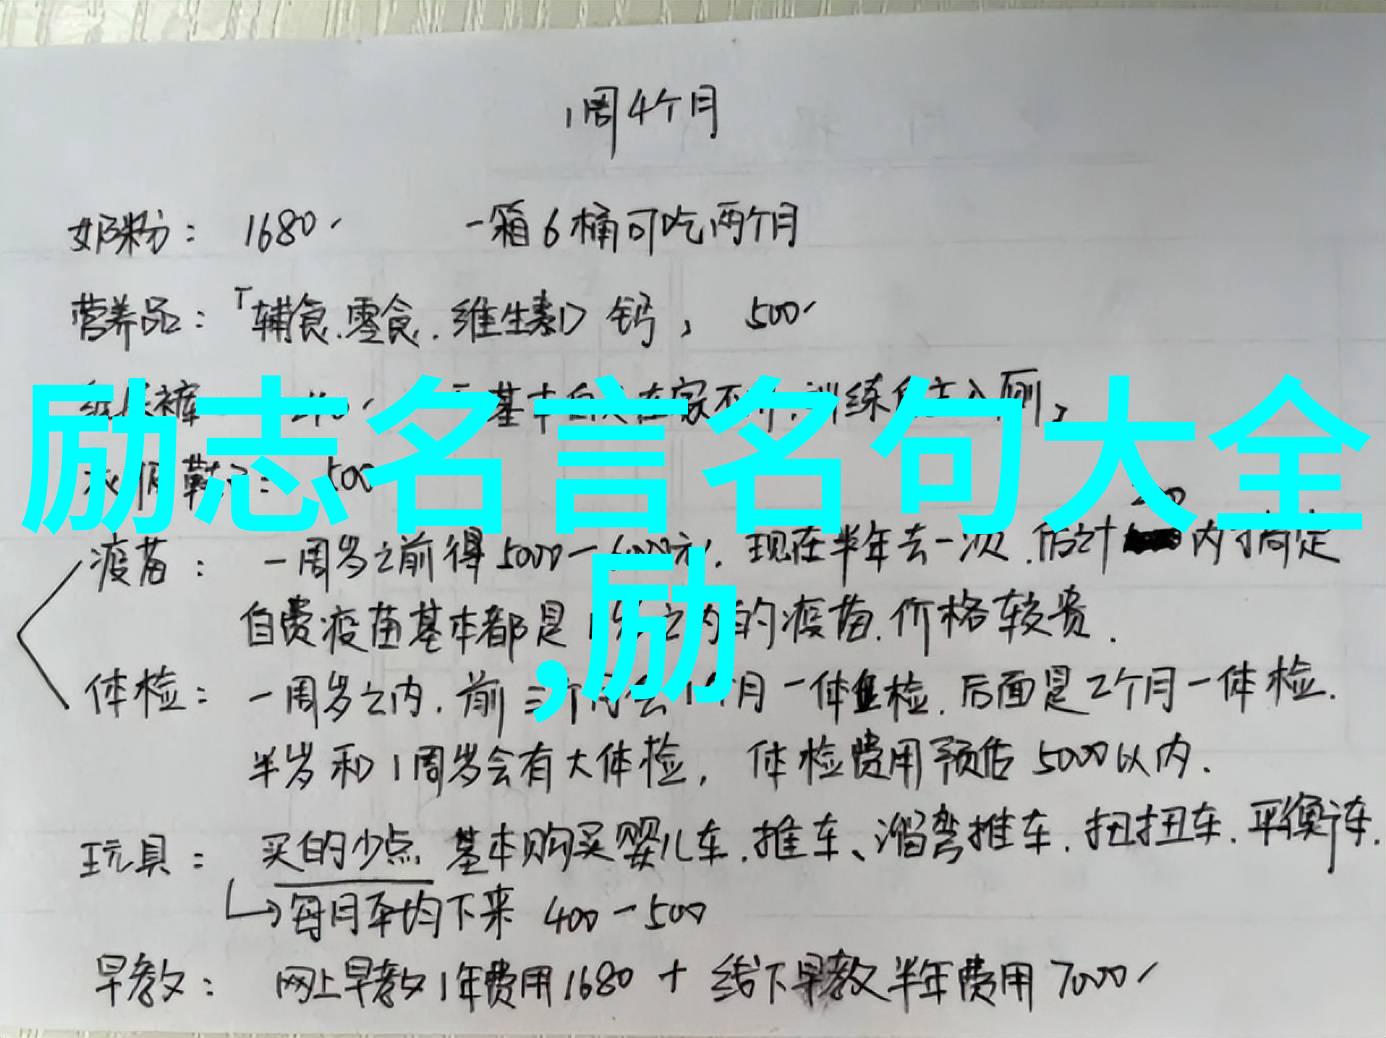 1周4个月
奶粉：1680、 一箱6桶可吃两个月
营养品：「辅食.零食.维生素D 钙, 500、
裤 基本 在家不 训练 厕,
励志名言名句大全
500
疫苗：一周岁之前得5000一6000元、现在半年去一次.估计 200 内可搞定
自费疫苗基本都是1岁之内的疫苗.价格较贵.
,励
体检：一周岁之内.前三个月 1个月一体检.后面是2个月一体检.
半岁和1周岁会有大体检, 体检费用预估5000以内.
玩具：买的少点 基本购买婴儿车.推车、溜弯推车.扭扭车.平衡车.
↳每月平均下来 400一500
早教：网上早教1年费用1680 + 线下早教半年费用7000、